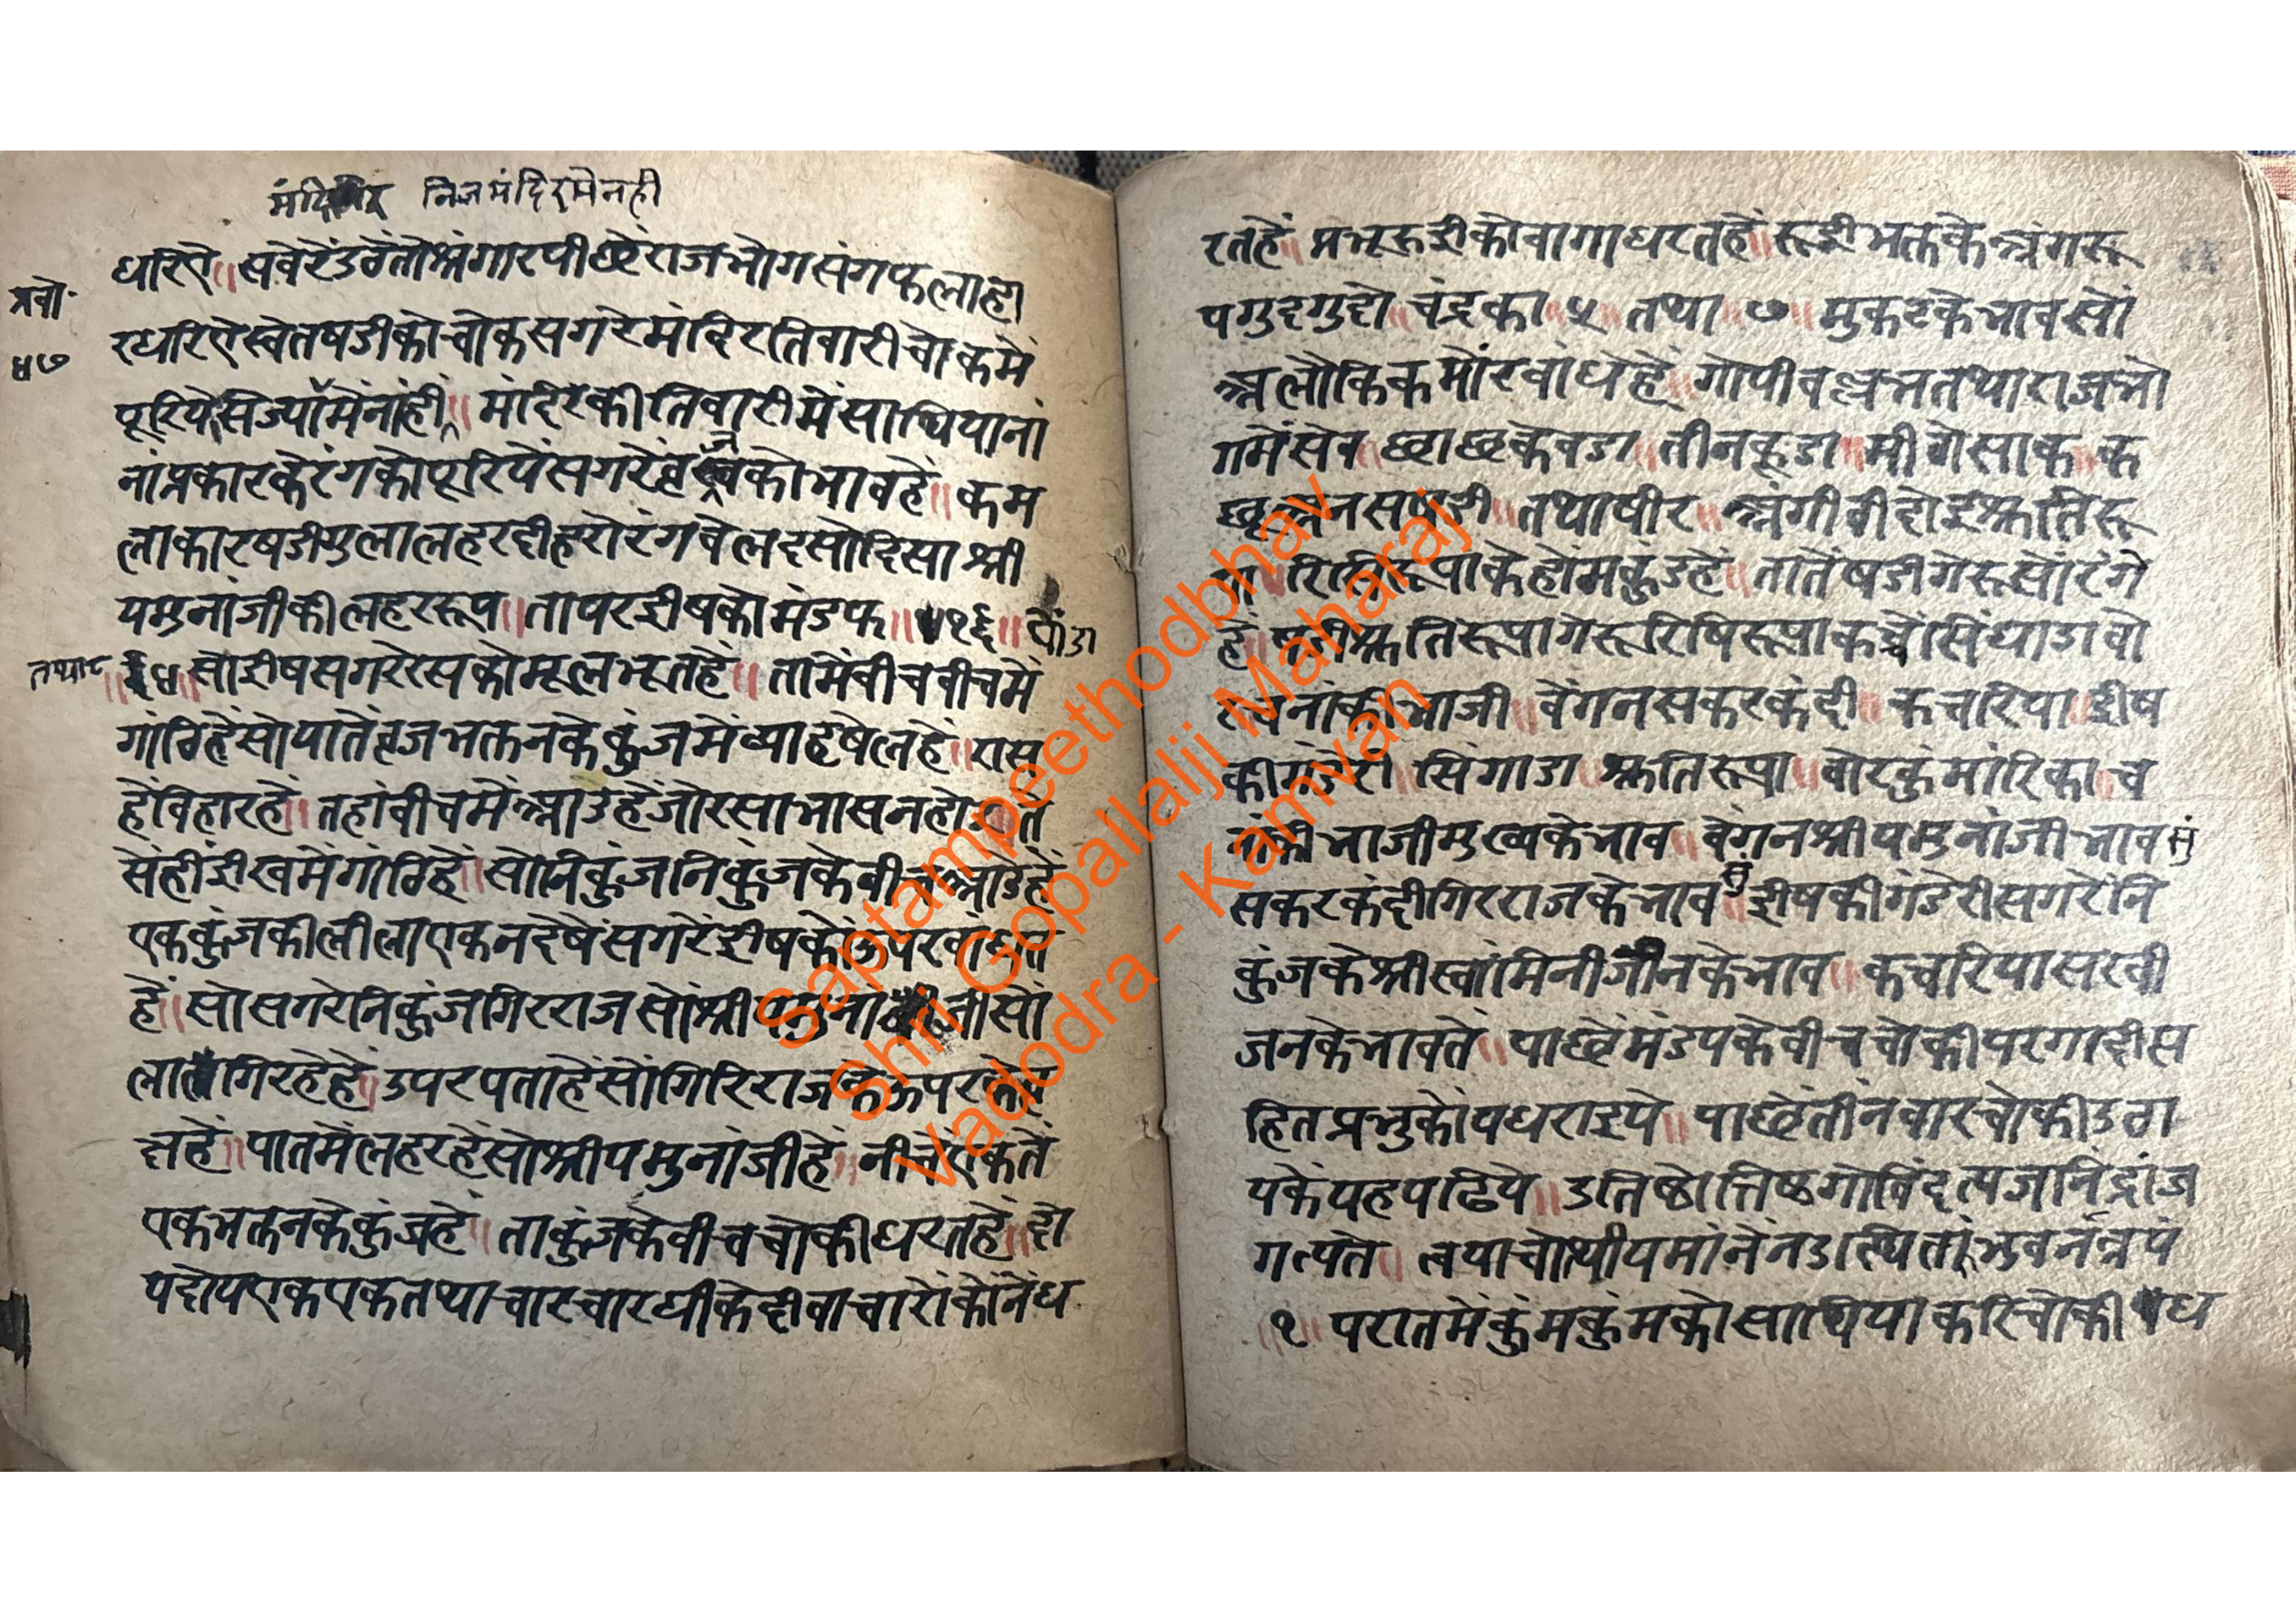 निजमंदिरमेनही
धरिऐ॥ सवेरेंउठेंतोश्रंगारपीछेंराजभोगसंगफलाहा
प्रबो॰
५७
रधरिऐस्वेतषडीकोचोकसगरेमंदिरतिवारीचोकमें
पूरियेसिज्यामेंनांहीं॥ मंदिरकीतिवारीमेंसाथियानां
नांप्रकारकेरंगकोपूरियेंसगरेंव्रजकोभावहे॥ कम
लाकारषडीगुलालहरदीहरोरंगवेलदसोदिसाश्री
यमुनांजीकीलहररूप॥ तापरईषकोमंडफ॥१६॥ सांडा
तथा८
॥ सोईषसगरेरसकोमूलभूतहें॥ तामेंवीचवीचमें
गांठिहेंसोयातेंव्रजभक्तनकेकुंजमेंव्याहषेलहें॥ रास
हेंविहारहें॥ तहांवीचमेंआडहेंजोरसाभासनहोइ
सेंहीईखमेंगांठिहें॥ सोनिकुंजनिकुंजकेवीचआडहें
एककुंजकीलीलाएकनदेषेंसगरेंईषकोंउपरवांधत
हें॥ सोसगरेनिकुंजगिरराजसोंश्रीयमुनाजीसों
लागिरहेहें॥ उपरपताहेंसोगिरिराजकेऊपर
हें॥ पातमेंलहरहेंसोश्रीयमुनांजीहें॥ नीचेंएकतें
एकभक्तनकेकुंजहें॥ ताकुंजकेवीचचोकीधरतहें॥ दो
यदोयएकएकतथाचारचारघीकेदीवाचारोंकोनेंध
रतहें॥ प्रभूरूईकोवागाधरतहें॥ रूईभक्तकेअंगरू
पगुदगुदो॥ चंद्रका॥५॥ तथा॥७॥ मुकटकेभावसों
अलौकिकमोरवांधेहें॥ गोपीवल्लभतथाराजभो
गमेंसेव॥ छाछकेवडा॥ तीनकूडा॥ मीठोसाक॥ क
छूअनसषडी॥ तथाषीर॥ अंगीठीदोइश्रुतिरू
पा॥ रिषिरूपाकेहोंमकुडहें॥ तातेंषडीगेरूसोंरंगे
हें॥ षडीश्रुतिरूपागेरूरिषिरूपाकच्चेंसिंघाडावो
रचनांकीभाजी॥ वेंगनसकरकंदी॥ कचरिया॥ ईष
कीगंडेरी॥ सिंगाडा॥ श्रुतिरूपा॥ वोरकुंमारिका॥ च
नांकीभाजीमुख्यकेभाव॥ वेंगनश्रीयमुनांजीभावसुं
सकरकंदीगिरराजकेभावसुं॥ ईषकीगंडेरीसगरेनि
कुंजकेश्रीस्वांमिनीजीनकेभाव॥ कचरियासखी
जनकेभावतें॥ पाछेंमंडपकेवीचचोकीपरगादीस
हितप्रभुकोंपधराइये॥ पाछेंतीनवारचोकीउठा
यकेंयहपढिये॥ उतिष्ठोत्तिष्ठगोविंदत्यजनिद्रांज
गत्पते॥ त्वयाचोत्थीयमांनेनउत्थितांभुवनंत्रयं
॥१॥ परातमेंकुंमकुंमकोसाथियाकरिचोकीध